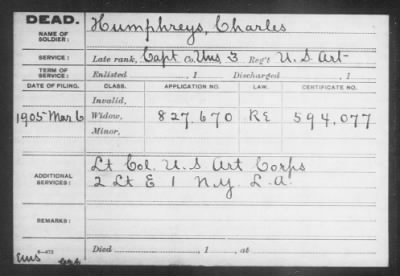 DEAD.
NAME OF SOLDIER:
Humphreys, Charles
SERVICE:
Late rank, Capt Co. Uns. 3 Reg't U. S. Art
TERM OF SERVICE:
Enlisted , 1 Discharged , 1
DATE OF FILING. CLASS. APPLICATION NO. LAW. CERTIFICATE NO.
Invalid,
1905 Mar 6 Widow, 827,670 RE 594,077
Minor,
ADDITIONAL SERVICES:
Lt Col. U. S Art Corps
2 Lt E 1 N.Y. L. A.
REMARKS:
Died , 1 , at